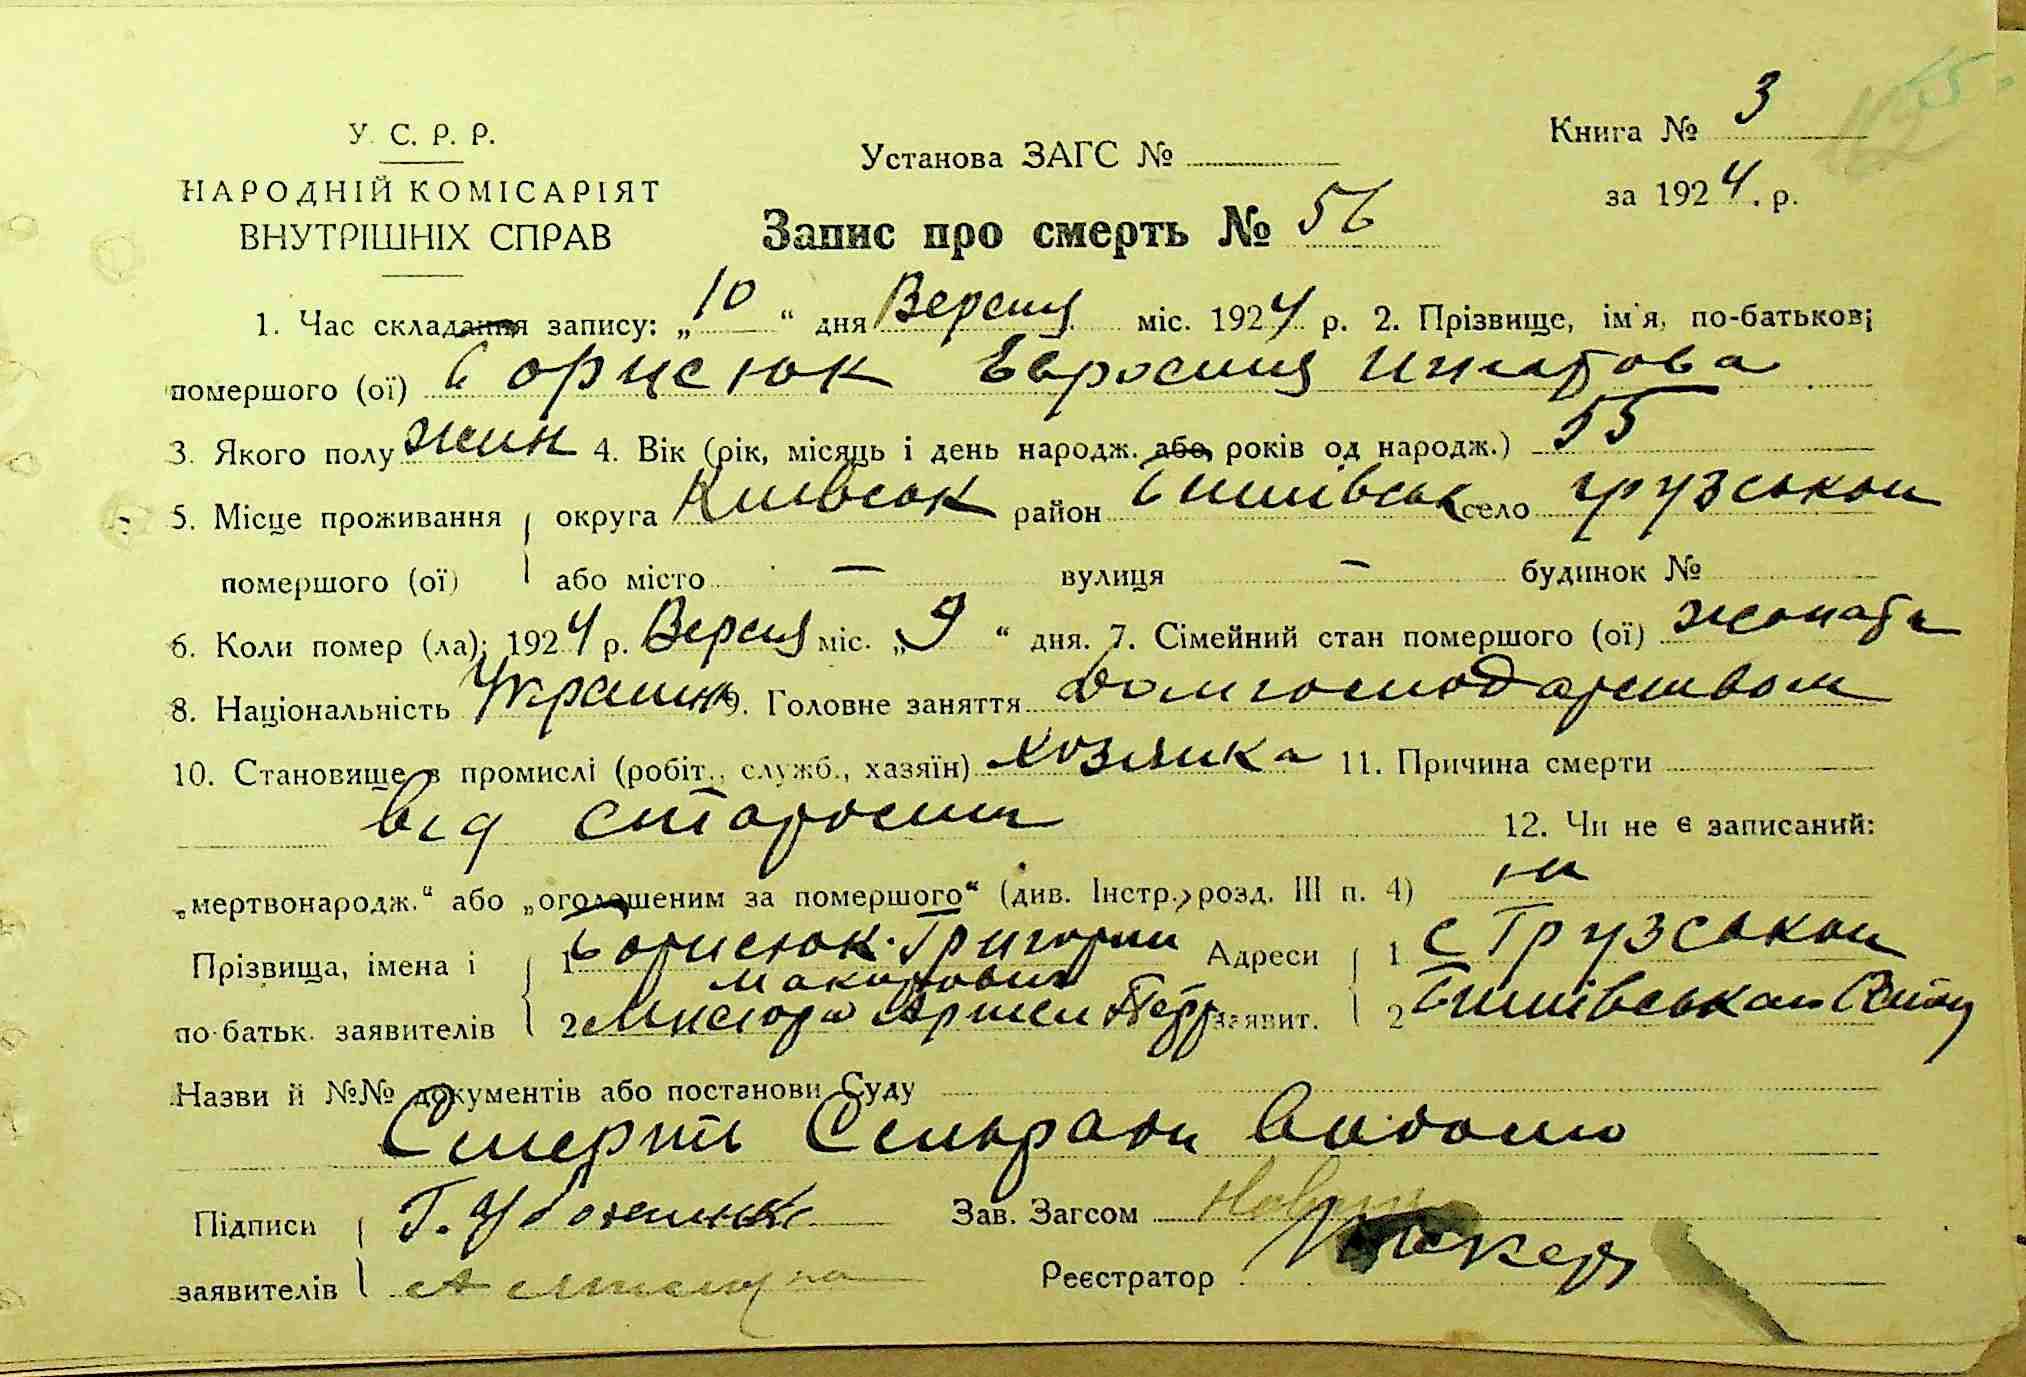 У. С. Р. Р.
НАРОДНІЙ КОМІСАРІЯТ
ВНУТРІШНІХ СПРАВ
Установа ЗАГС №
Книга № 3
за 1924. р.
Запис про смерть № 56
1. Час складання запису: „10“ дня Версня міс. 1924 р. 2. Прізвище, ім'я, по-батькові
помершого (ої) Борисюк Евросиня Игнатова
3. Якого полу жин 4. Вік (рік, місяць і день народж. або років од народж.) 55
5. Місце проживання округа Київськ район Бишівськ село Грузьской
помершого (ої) або місто — вулиця — будинок №
6. Коли помер (ла): 1924 р. Версня міс. „9“ дня. 7. Сімейний стан помершого (ої) жоната
8. Національність Украинк 9. Головне заняття Домгосподарством
10. Становище в промислі (робіт., служб., хазяїн) хозяика 11. Причина смерти
від старости 12. Чи не є записаний:
„мертвонародж.“ або „оголошеним за помершого“ (див. Інстр., розд. III п. 4) ни
Прізвища, імена і 1 Борисюк Григорий Адреси 1 с Грузськои
Макарович
по-батьк. заявителів 2 Артем Петр заявит. 2 Бишівськаю
Назви й №№ документів або постанови Суду
Смерть Сельради видомо
Підписи Г. Зав. Загсом
заявителів А Реєстратор